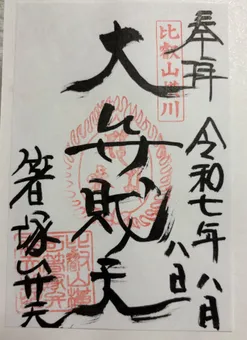 奉拝
比叡山横川
令和七年八月
八日
大弁財天
箸塚弁天